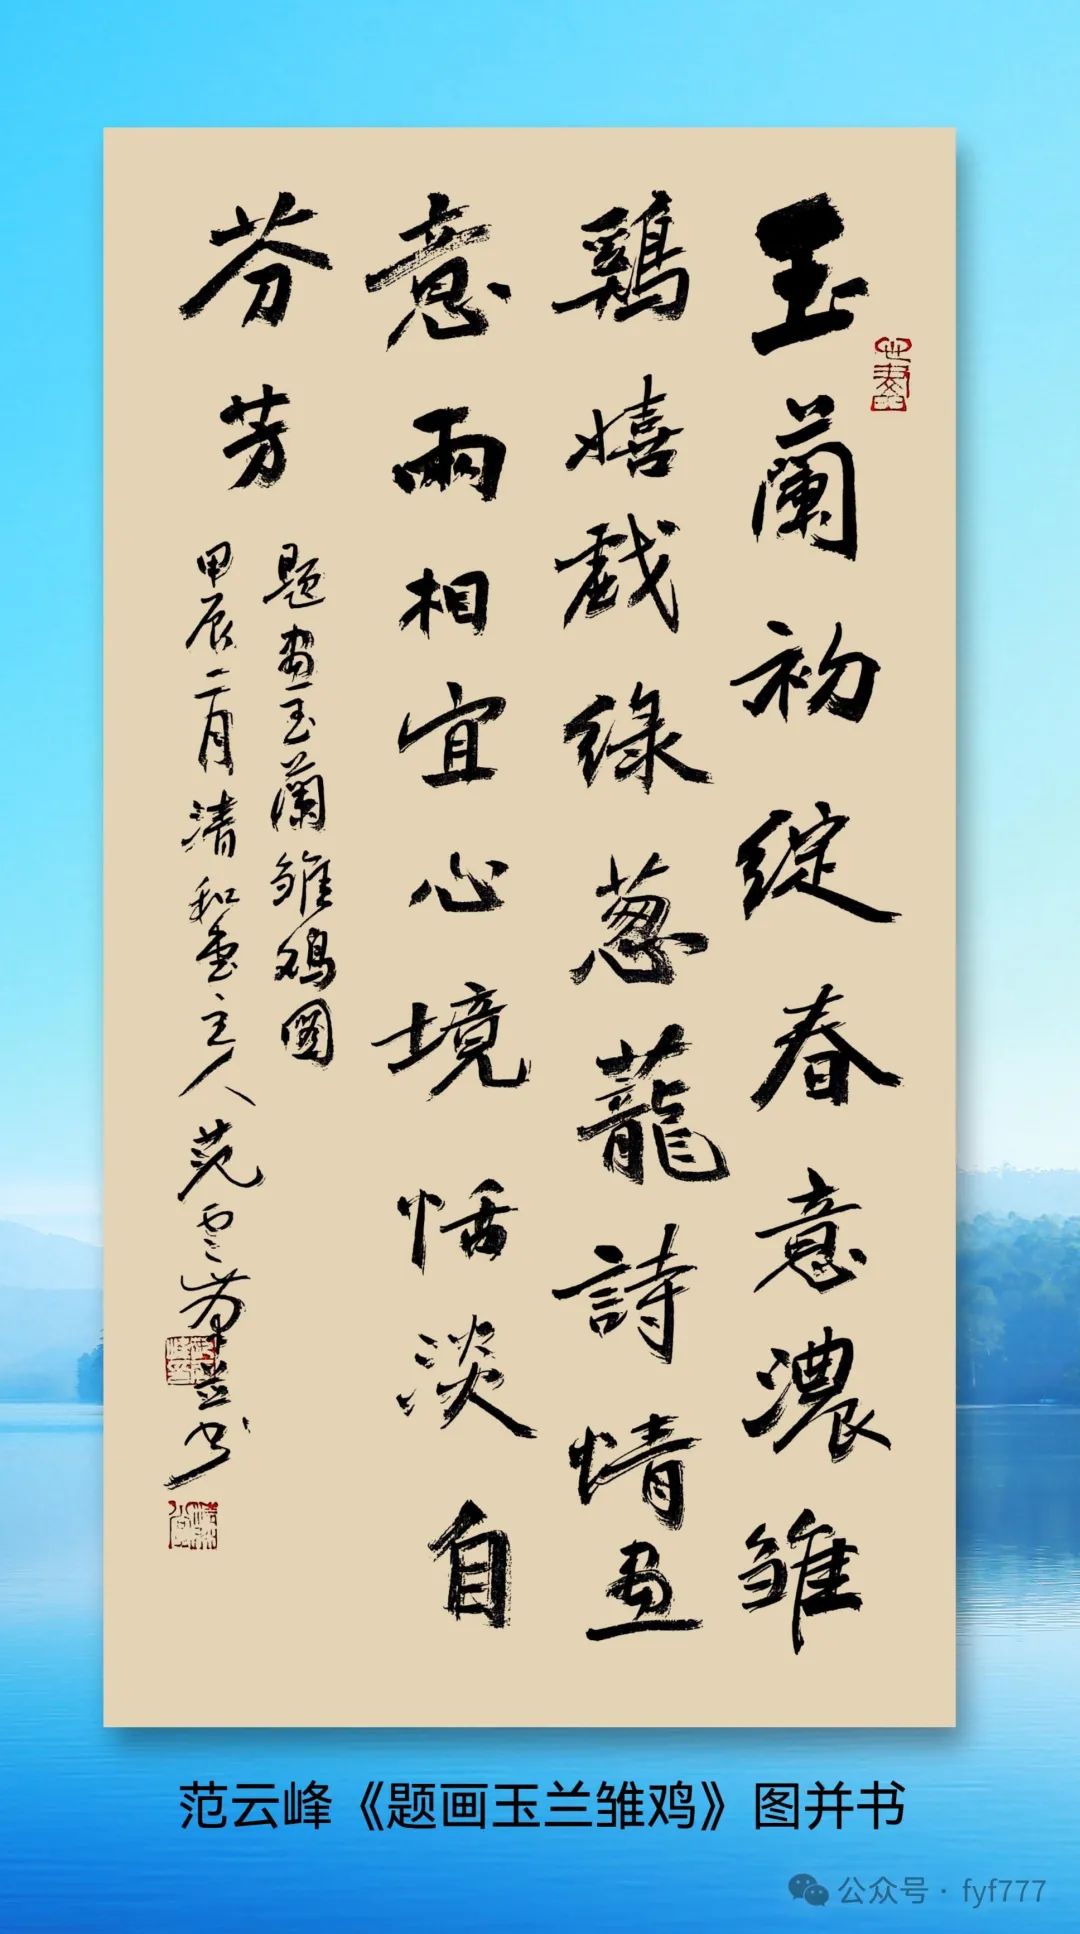 玉蘭初綻春意濃雏
鷄嬉戲綠蔥蘢詩情畫
意兩相宜心境恬淡自
芬芳
题畫玉蘭雏鸡图
甲辰二月清和堂主人范雲峯並书
范云峰《题画玉兰雏鸡》图并书
公众号·fyf777